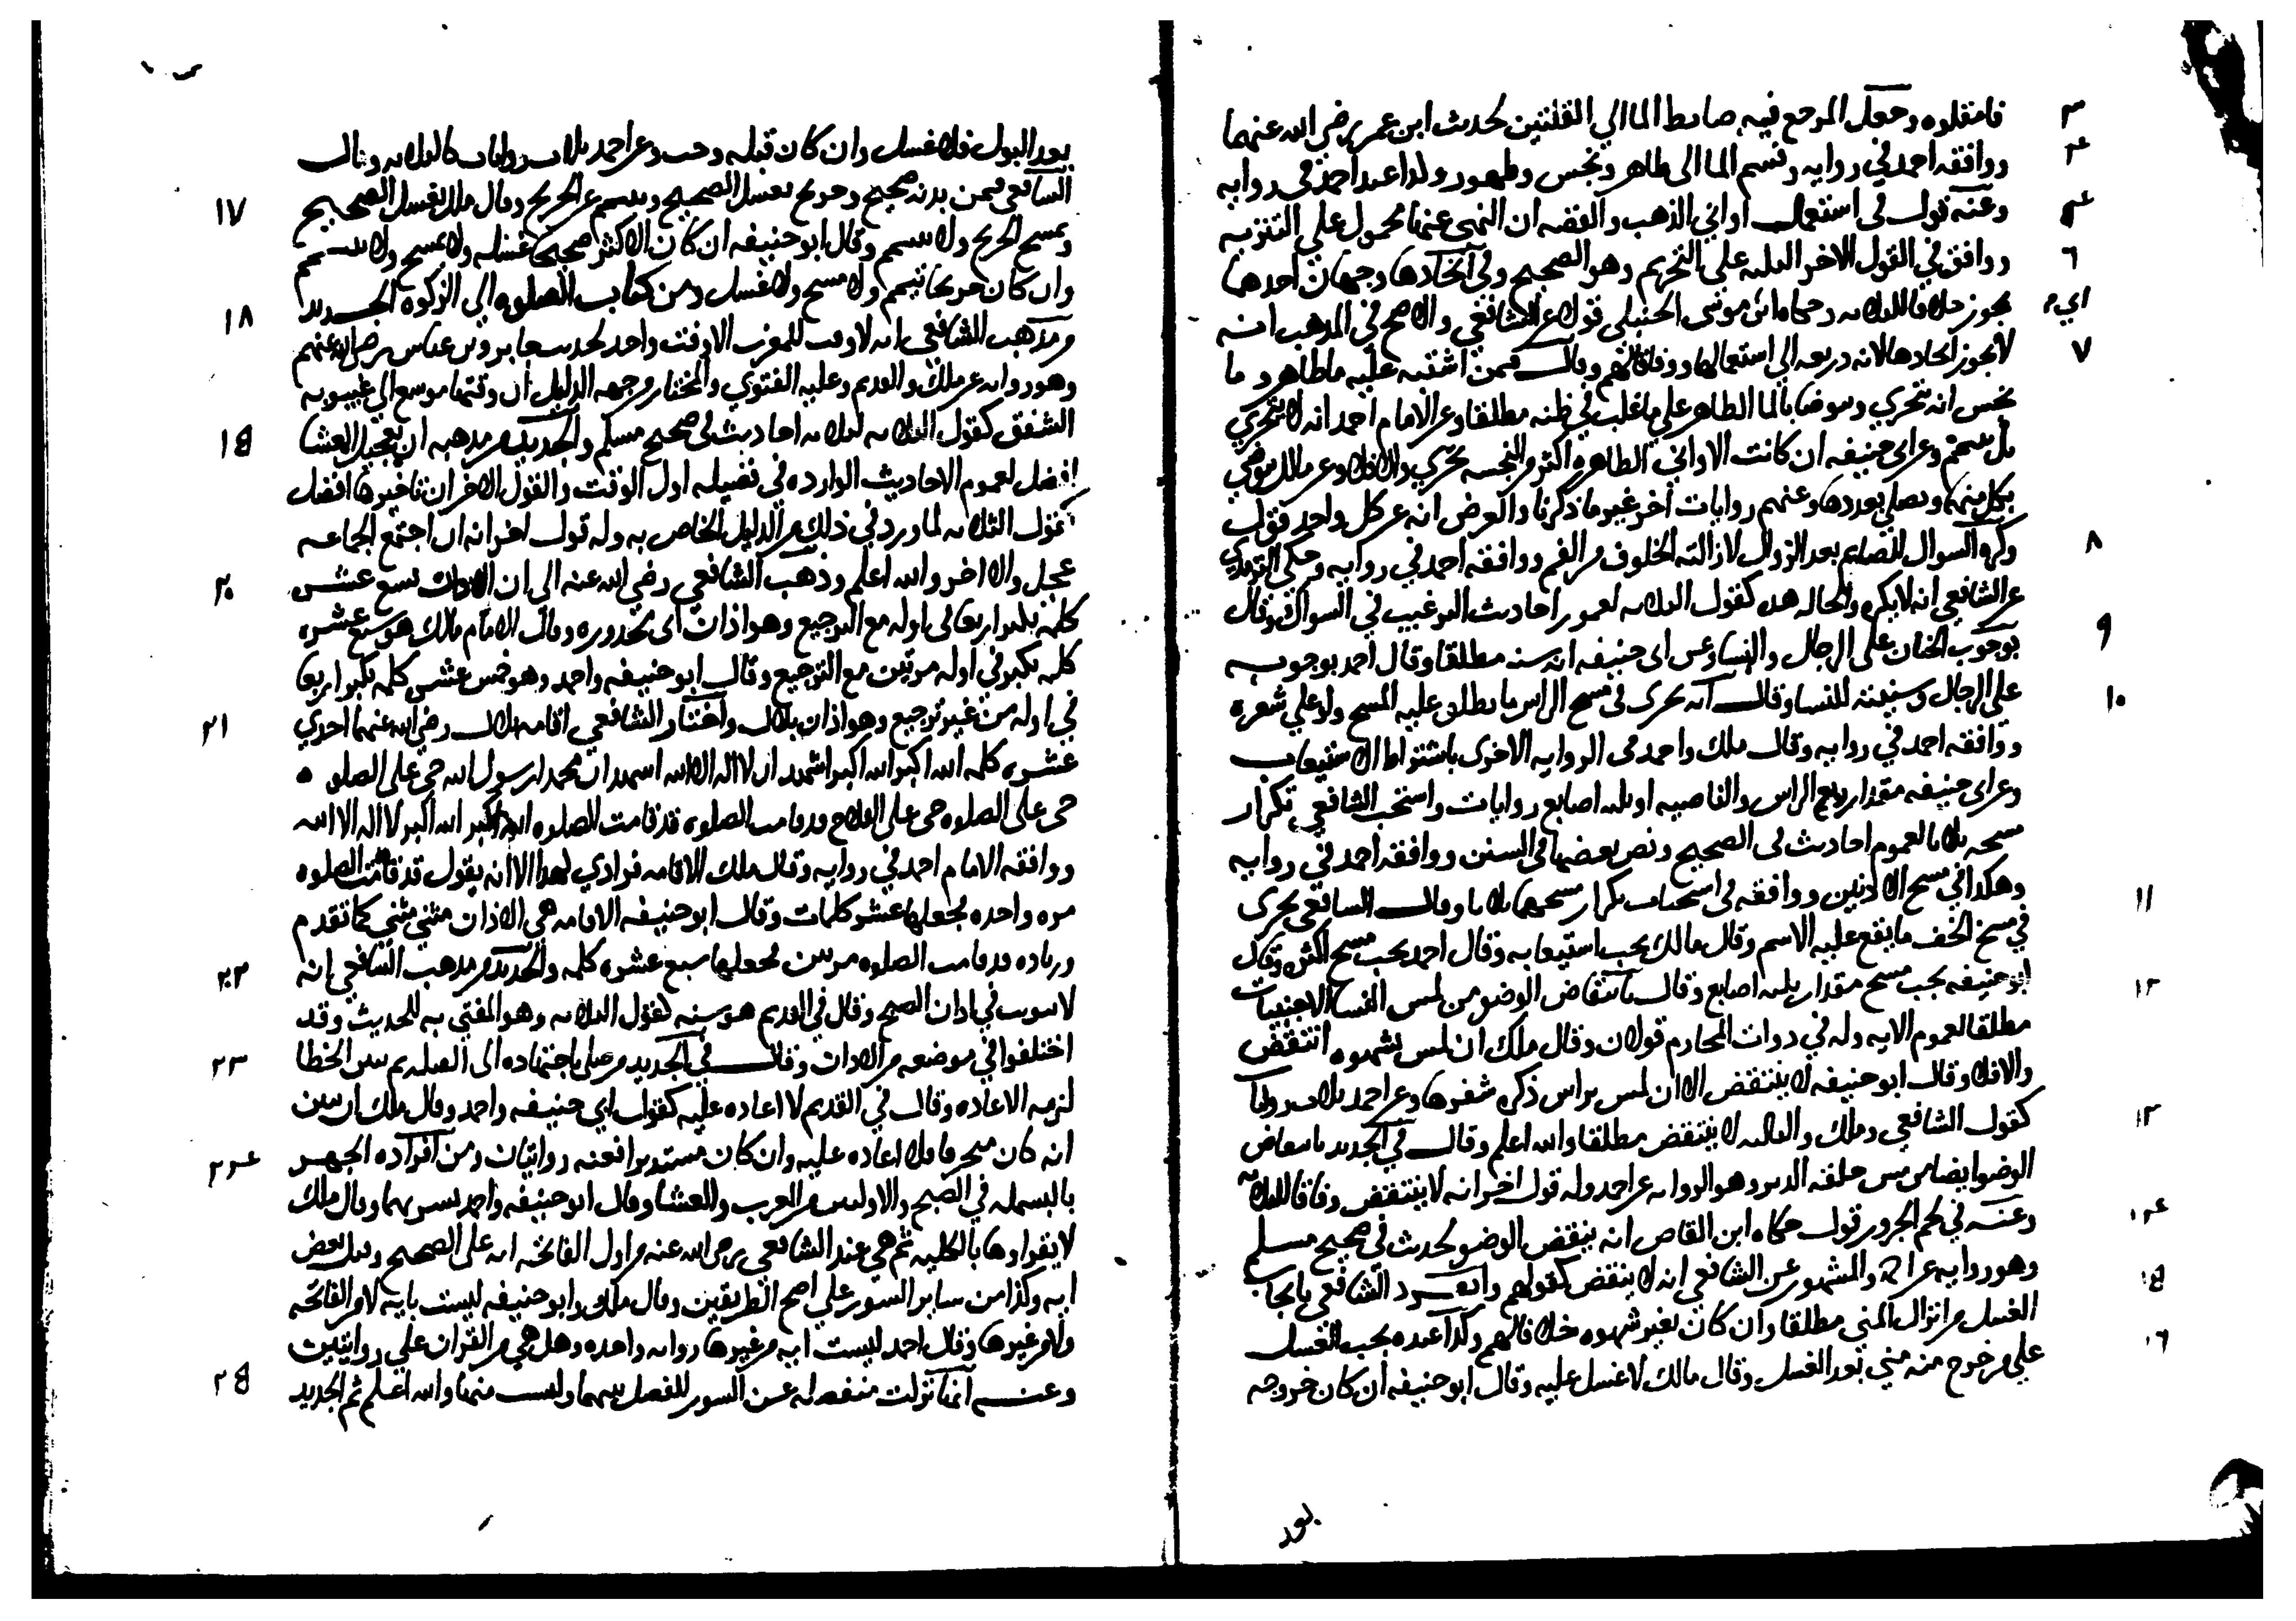 فامقلوه وجعل المرجع فيه ضابط الما الي القلتين لحديث ابن عمر رضي الله عنهما
ووافقه احمد في روايه وقسم الما الى طاهر ونجس وطهور ولذا عند احمد في روايه
وعنه قول في استعمال اواني الذهب والفضه ان النهي عنها محمول علي التنزيه
ووافق في القول الاخر الثلثه علي التحريم وهو الصحيح وفي اتخادها وجهان احدها
يجوز خلافا للثلاثه وحكاه ابن موسى الحنبلي قولا عن الشافعي والاصح في المذهب انه
لا يجوز اتخادها لانه دريعه الي استعمالها ووفاقا لهم وقال فيمن اشتبه عليه ما طاهر وما
نجس انه يتحري ويتوضا بالما الطاهر علي ما غلب في ظنه مطلقا وعن الامام احمد انه لا يتحري
بل يتيمم وعن ابي حنيفه ان كانت الاواني الطاهره اكثر من النجسه تحري والا فلا وعن مالك يتوضي
بكل منها ويصلي بعددها وعنهم روايات اخر غير ما ذكرنا والغرض انه عن كل واحد قول
وكره السواك للصايم بعد الزوال لازالته الخلوف من الفم ووافقه احمد في روايه وحكي الترمذي
عن الشافعي انه لا يكره والحاله هذه كقول الثلاثه لعموم احاديث الترغيب في السواك وقال
بوجوب الختان علي الرجال والنسا وعن ابي حنيفه انه سنه مطلقا وقال احمد بوجوبه
علي الرجال وسنيته للنسا وقال انه يجزي في مسح الراس ما يطلق عليه المسح ولو علي شعره
ووافقه احمد في روايه وقال ملك واحمد في الروايه الاخرى باشتراط الاستيعاب
وعن ابي حنيفه مقدار ربع الراس والناصيه او ثلثه اصابع روايات واستحب الشافعي تكرار
مسحه ثلاثا لعموم احاديث في الصحيح ونص بعضها في السنن ووافقه احمد في روايه
وهكذا في مسح الاذنين ووافقه في استحباب تكرار مسحهما ثلاثا وقال الشافعي يجزي
في مسح الخف ما يقع عليه الاسم وقال مالك يجب استيعابه وقال احمد يجب مسح اكثره وقال
ابو حنيفه يجب مسح مقدار ثلثه اصابع وقال بانتقاض الوضو من لمس النسا الاجنبيات
مطلقا لعموم الايه وله في دوات المحارم قولان وقال ملك ان لمس بشهوه انتقض
والا فلا وقال ابو حنيفه لا ينتقض الا ان لمس براس ذكره شفرها وعن احمد ثلاث روايات
كقول الشافعي وملك والثالثه لا ينتقض مطلقا والله اعلم وقال في الجديد بانتقاض
الوضو ايضا من مس حلقه الدبر وهو الروايه عن احمد وله قول اخر انه لا ينتقض وفاقا للثلاثه
وعنه في لحم الجزور قول حكاه ابن القاص انه ينقض الوضو لحديث في صحيح مسلم
وهو روايه عن احمد والمشهور عن الشافعي انه لا ينقض كقولهم وانفرد الشافعي بايجاب
الغسل من انزال المني مطلقا وان كان بغير شهوه خلافا لهم وكذا عنده يجب الغسل
علي من خرج منه مني بعد الغسل وقال مالك لا غسل عليه وقال ابو حنيفه ان كان خروجه
بعد
بعد البول فلا غسل وان كان قبله وجب وعن احمد ثلاث روايات كالثلاثه وقال
الشافعي فيمن بدنه صحيح وجريح يغسل الصحيح ويتيمم عن الجريح وقال ملك يغسل الصحيح
ويمسح الجريح ولا يتيمم وقال ابو حنيفه ان كان الاكثر صحيحا غسله ولا يمسح ولا يتيمم
وان كان جريحا تيمم ولا مسح ولا غسل ومن كتاب الصلوه الى الزكوه الجديد
من مذهب الشافعي انه لا وقت للمغرب الا وقت واحد لحديث جابر وابن عباس رضي الله عنهم
وهو روايه عن ملك والقديم وعليه الفتوي والمختار من جهه الدليل ان وقتها موسع الي غيبوبه
الشفق كقول الثلاثه لثلاثه احاديث في صحيح مسلم والجديد من مذهبه ان تعجيل العشا
افضل لعموم الاحاديث الوارده في فضيله اول الوقت والقول الاخر ان تاخيرها افضل
كقول الثلاثه لما ورد في ذلك من الدليل الخاص به وله قول اخر انه ان اجتمع الجماعه
عجل والا اخر والله اعلم وذهب الشافعي رضي الله عنه الى ان الاذان تسع عشره
كلمه بكبر اربعا في اوله مع الترجيع وهو اذان ابي محدوره وقال الامام مالك هو سبع عشره
كلمه يكبر في اوله مرتين مع الترجيع وقال ابو حنيفه واحمد وهو خمس عشره كلمه يكبر اربعا
في اوله من غير ترجيع وهو اذان بلال واختار الشافعي اقامه بلال رضي الله عنهما احدي
عشره كلمه الله اكبر الله اكبر اشهد ان لا اله الا الله اشهد ان محمدا رسول الله حي على الصلوه
حي على الصلوه حي على الفلاح قد قامت الصلوه قد قامت الصلوه الله اكبر الله اكبر لا اله الا الله
ووافقه الامام احمد في روايه وقال ملك الاقامه فرادي لهذا الا انه يقول قد قامت الصلوه
مره واحده يجعلها عشر كلمات وقال ابو حنيفه الاقامه هي الاذان مثني مثني كما تقدم
وزياده قد قامت الصلوه مرتين يجعلها سبع عشره كلمه والجديد من مذهب الشافعي انه
لا تثويب في اذان الصبح وقال في القديم هو سنه كقول الثلاثه وهو المفتي به للحديث وقد
اختلفوا في موضعه من الاذان وقال في الجديد من صلى باجتهاده الى القبله ثم تبين الخطا
لزمه الاعاده وقال في القديم لا اعاده عليه كقول ابي حنيفه واحمد وقال ملك ان تبين
انه كان منحرفا فلا اعاده عليه وان كان مستدبرا فعنه روايتان ومن افراده الجهر
بالبسمله في الصبح والاوليين من المغرب والعشا وقال ابو حنيفه واحمد يسر بهما وقال ملك
لا يقراوها بالكليه ثم هي عند الشافعي رضي الله عنه من اول الفاتحه ايه على الصحيح وقيل بعض
ايه وكذا من ساير السور علي اصح الطريقين وقال ملك وابو حنيفه ليست بايه لا من الفاتحه
ولا من غيرها وقال احمد ليست ايه من غيرها روايه واحده وهل هي من القران علي روايتين
وعنه انها نزلت منفصله عن السور للفصل بينهما وليست منها والله اعلم ثم الجديد